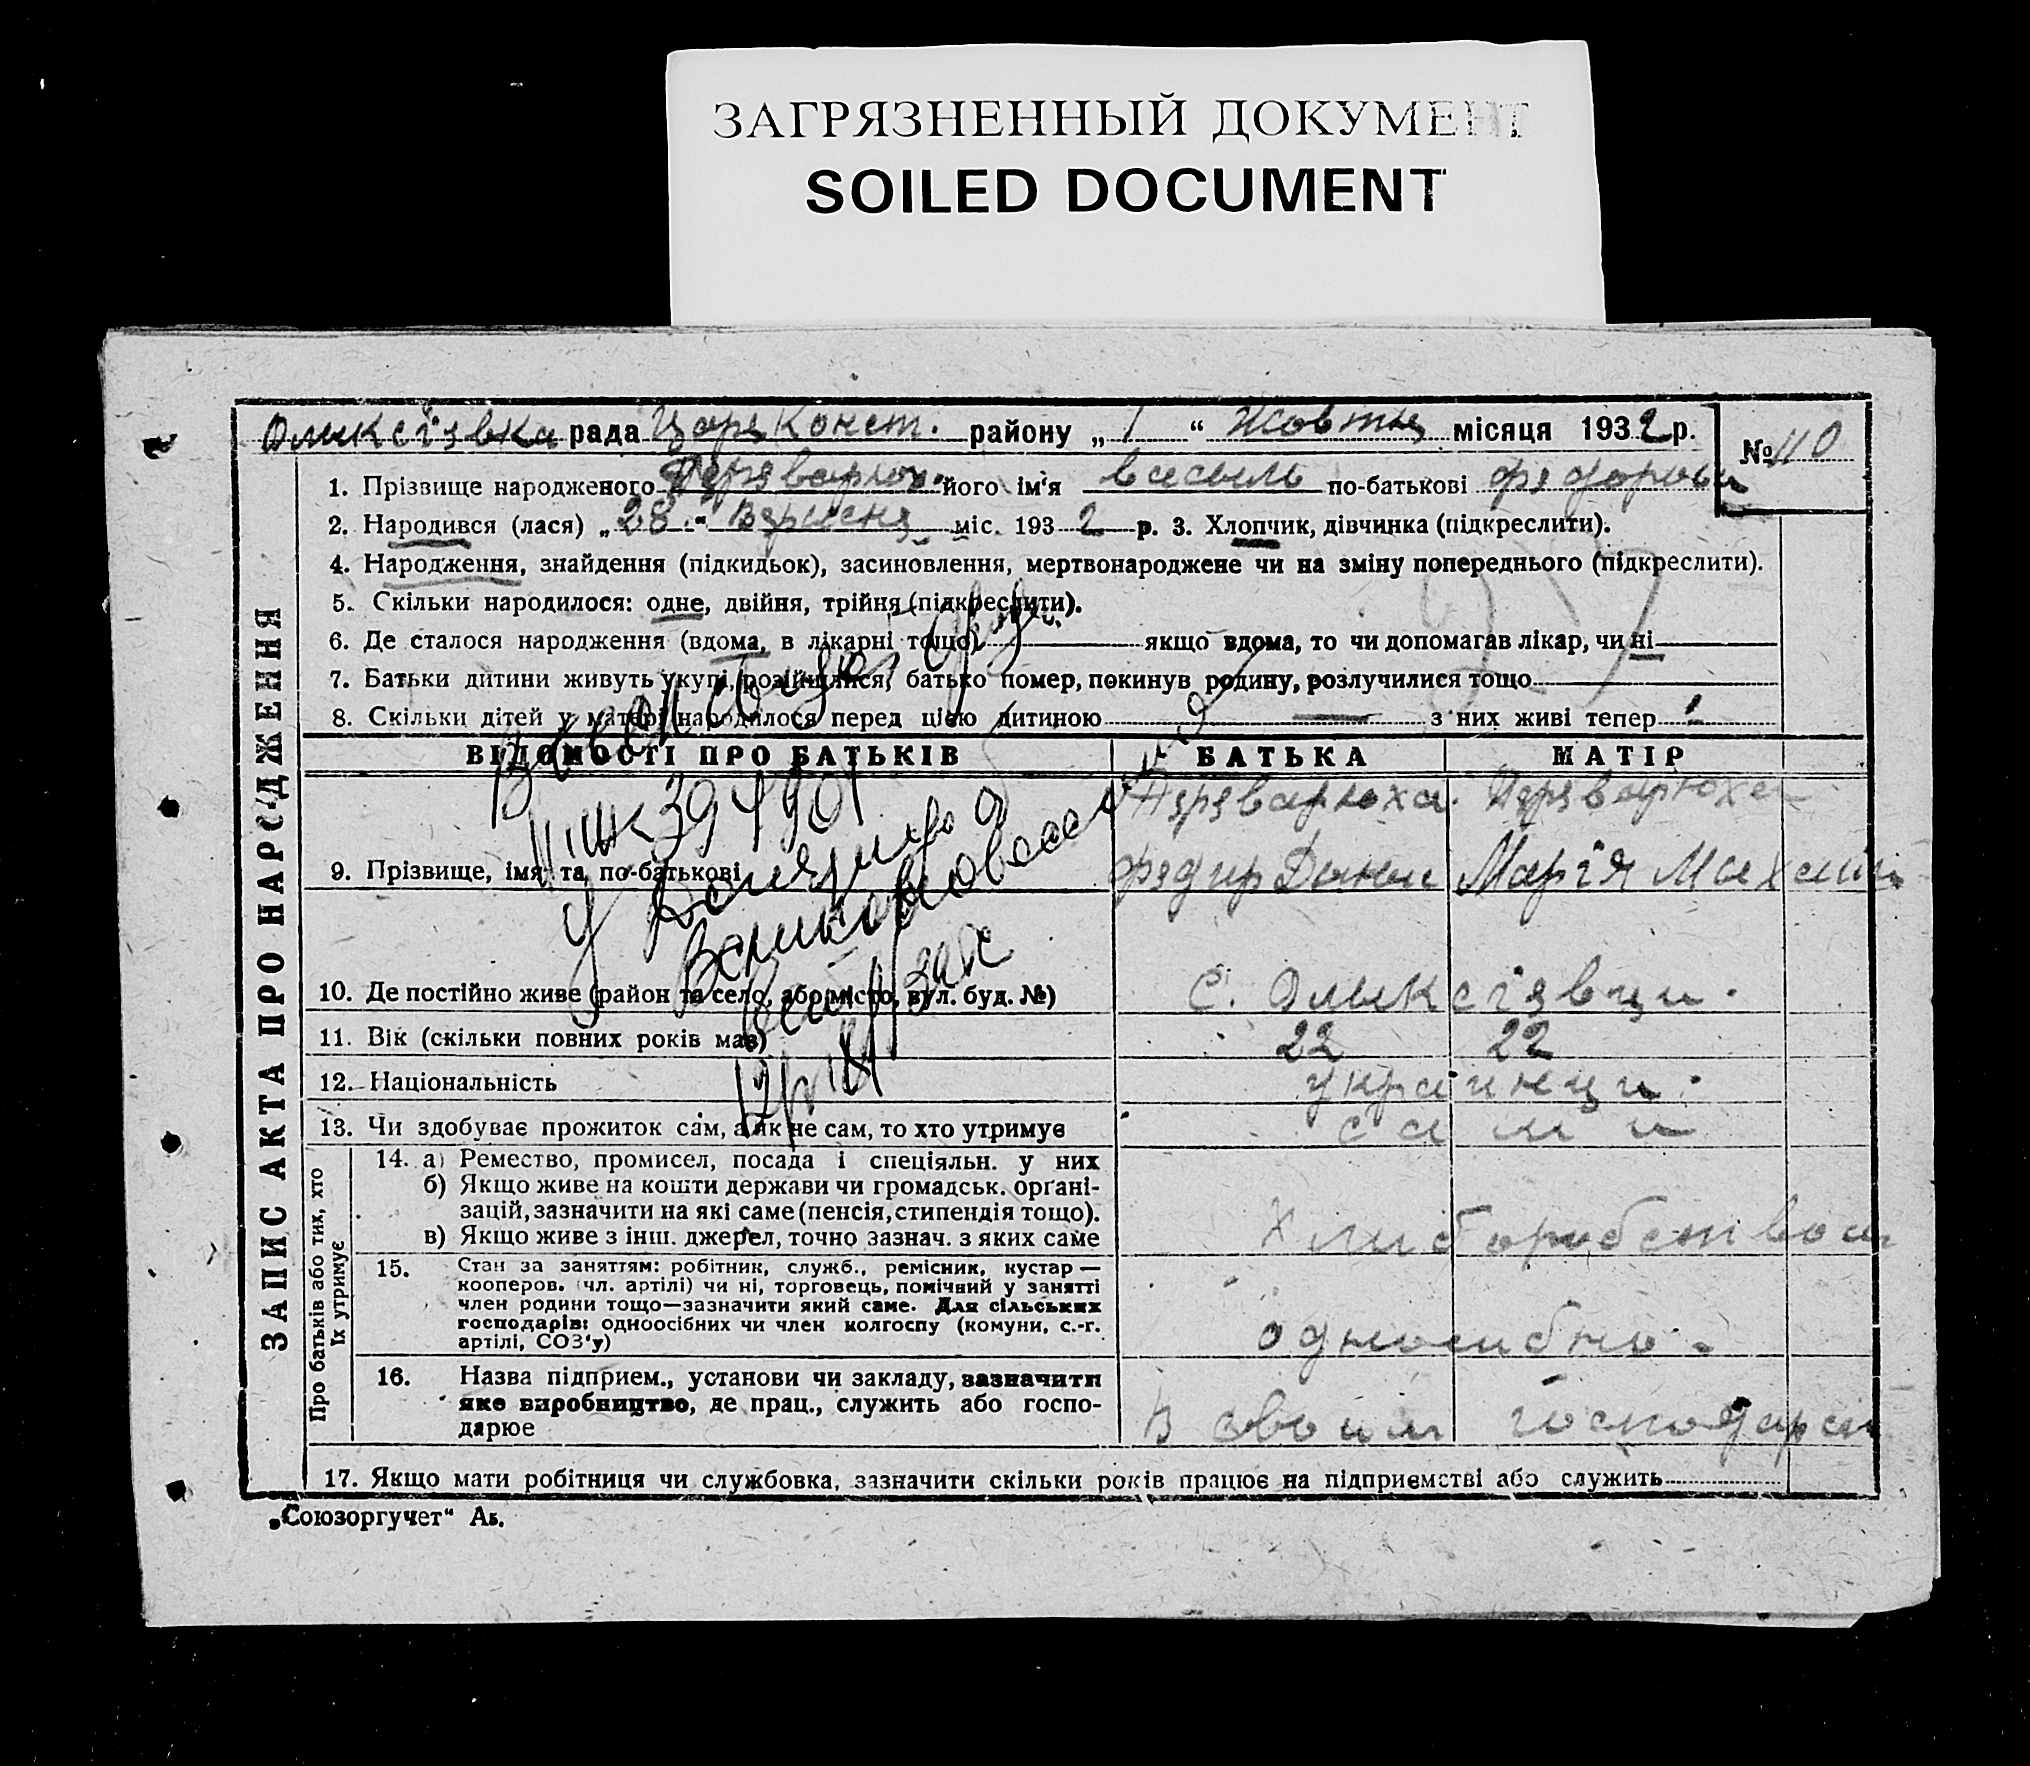 ЗАГРЯЗНЕННЫЙ ДОКУМЕНТ
SOILED DOCUMENT
Оликсіевка рада Цареконст. району „ 1 “ Жовтня місяця 1932 р. № 110
1. Прізвище народженого Переварюха його ім'я Васыль по-батькові Федоров
2. Народився (лася) „28“ Вересня міс. 1932 р. 3. Хлопчик, дівчинка (підкреслити).
4. Народження, знайдення (підкидьок), засиновлення, мертвонароджене чи на зміну попереднього (підкреслити).
5. Скільки народилося: одне, двійня, трійня (підкреслити).
6. Де сталося народження (вдома, в лікарні тощо) якщо вдома, то чи допомагав лікар, чи ні
7. Батьки дитини живуть укупі, розійшлися, батько помер, покинув родину, розлучилися тощо
8. Скільки дітей у матері народилося перед цією дитиною — з них живі тепер 1
ВІДОМОСТІ ПРО БАТЬКІВ БАТЬКА МАТІР
Переварюха. Переварюха
9. Прізвище, імя та по-батькові Федир Данил Марія
10. Де постійно живе (район та село, або місто, вул. буд. №) С. Оликсіевци.
11. Вік (скільки повних років має) 22 22
12. Національність украинци.
13. Чи здобуває прожиток сам, а як не сам, то хто утримує сами
14. а) Ремество, промисел, посада і спеціяльн. у них
б) Якщо живе на кошти держави чи громадськ. органі-
зацій, зазначити на які саме (пенсія, стипендія тощо).
в) Якщо живе з інш. джерел, точно зазнач. з яких саме Хлиборобством
15. Стан за заняттям: робітник, служб., ремісник, кустар —
кооперов. (чл. артілі) чи ні, торговець, помічний у занятті
член родини тощо—зазначити який саме. Для сільських
господарів: одноосібних чи член колгоспу (комуни, с.-г.
артілі, СОЗ'у) одноосибно.
16. Назва підприєм., установи чи закладу, зазначити
яке виробництво, де прац., служить або госпо-
дарює В своим господарст
17. Якщо мати робітниця чи службовка, зазначити скільки років працює на підприємстві або служить
ЗАПИС АКТА ПРО НАРОДЖЕННЯ
Про батьків або тих, хто
їх утримує
„Союзоргучет“